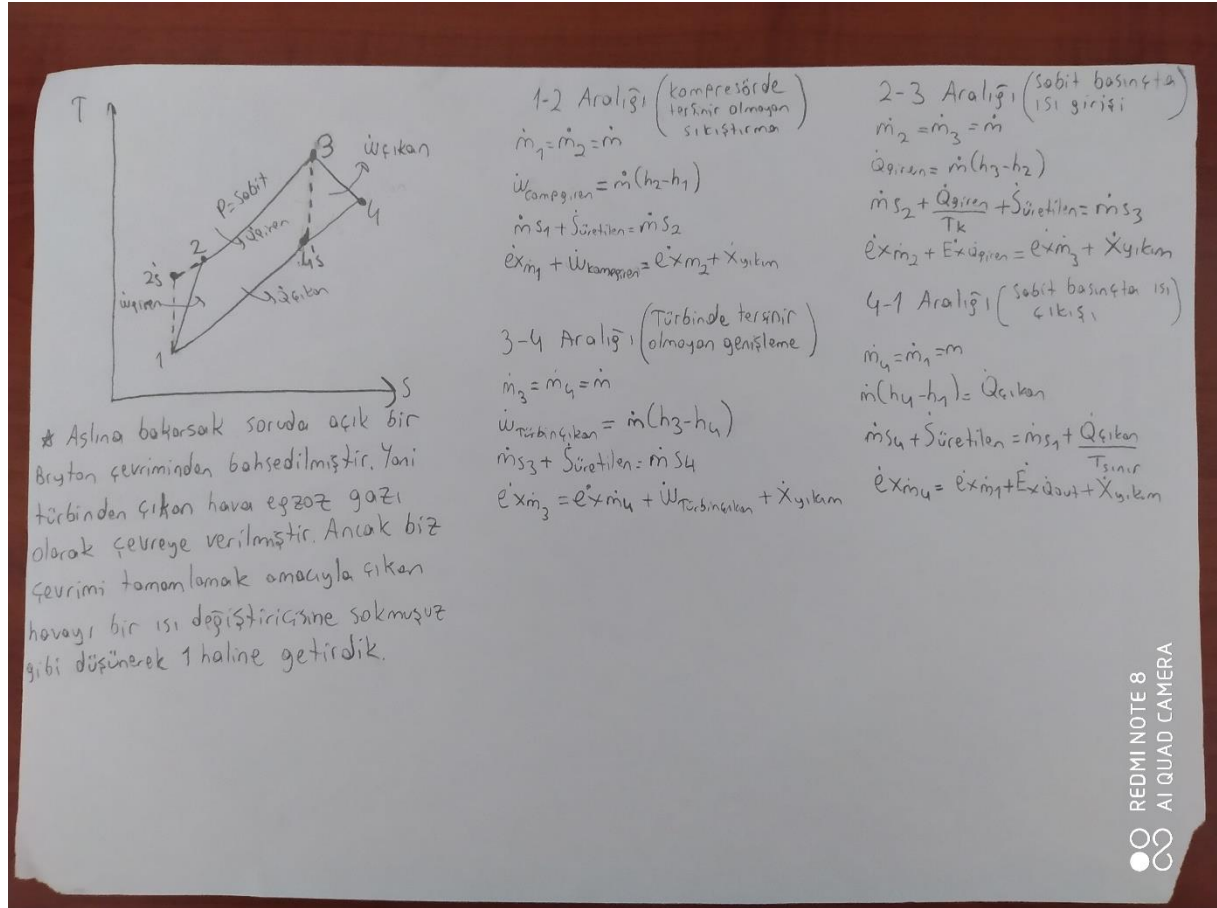 T
3
Ẇçıkan
P=Sabit
Q̇giren
2
4
2s
4s
ẇgiren
Q̇çıkan
1
S
* Aslına bakarsak soruda açık bir
Bryton çevriminden bahsedilmiştir. Yani
türbinden çıkan hava egzoz gazı
olarak çevreye verilmiştir. Ancak biz
çevrimi tamamlamak amacıyla çıkan
havayı bir ısı değiştiricisine sokmuşuz
gibi düşünerek 1 haline getirdik.
1-2 Aralığı (kompresörde
tersinir olmayan
sıkıştırma)
ṁ₁=ṁ₂=ṁ
Ẇcompgiren=ṁ(h₂-h₁)
ṁs₁+Ṡüretilen=ṁs₂
ėxṁ₁+Ẇkompgiren=ėxm₂+Ẋyıkım
3-4 Aralığı (Türbinde tersinir
olmayan genişleme)
ṁ₃=ṁ₄=ṁ
ẆTürbinçıkan=ṁ(h₃-h₄)
ṁs₃+Ṡüretilen=ṁs₄
ėxṁ₃=ėxṁ₄+ẆTürbinçıkan+Ẋyıkım
2-3 Aralığı (sabit basınçta
ısı girişi)
ṁ₂=ṁ₃=ṁ
Q̇giren=ṁ(h₃-h₂)
ṁs₂+Q̇giren/Tk+Ṡüretilen=ṁs₃
ėxṁ₂+ĖxQ̇giren=ėxṁ₃+Ẋyıkım
4-1 Aralığı (Sabit basınçta ısı
çıkışı)
ṁ₄=ṁ₁=m
ṁ(h₄-h₁)=Q̇çıkan
ṁs₄+Ṡüretilen=ṁs₁+Q̇çıkan/Tsınır
ėxṁ₄=ėxṁ₁+ĖxQ̇out+Ẋyıkım
REDMI NOTE 8
AI QUAD CAMERA